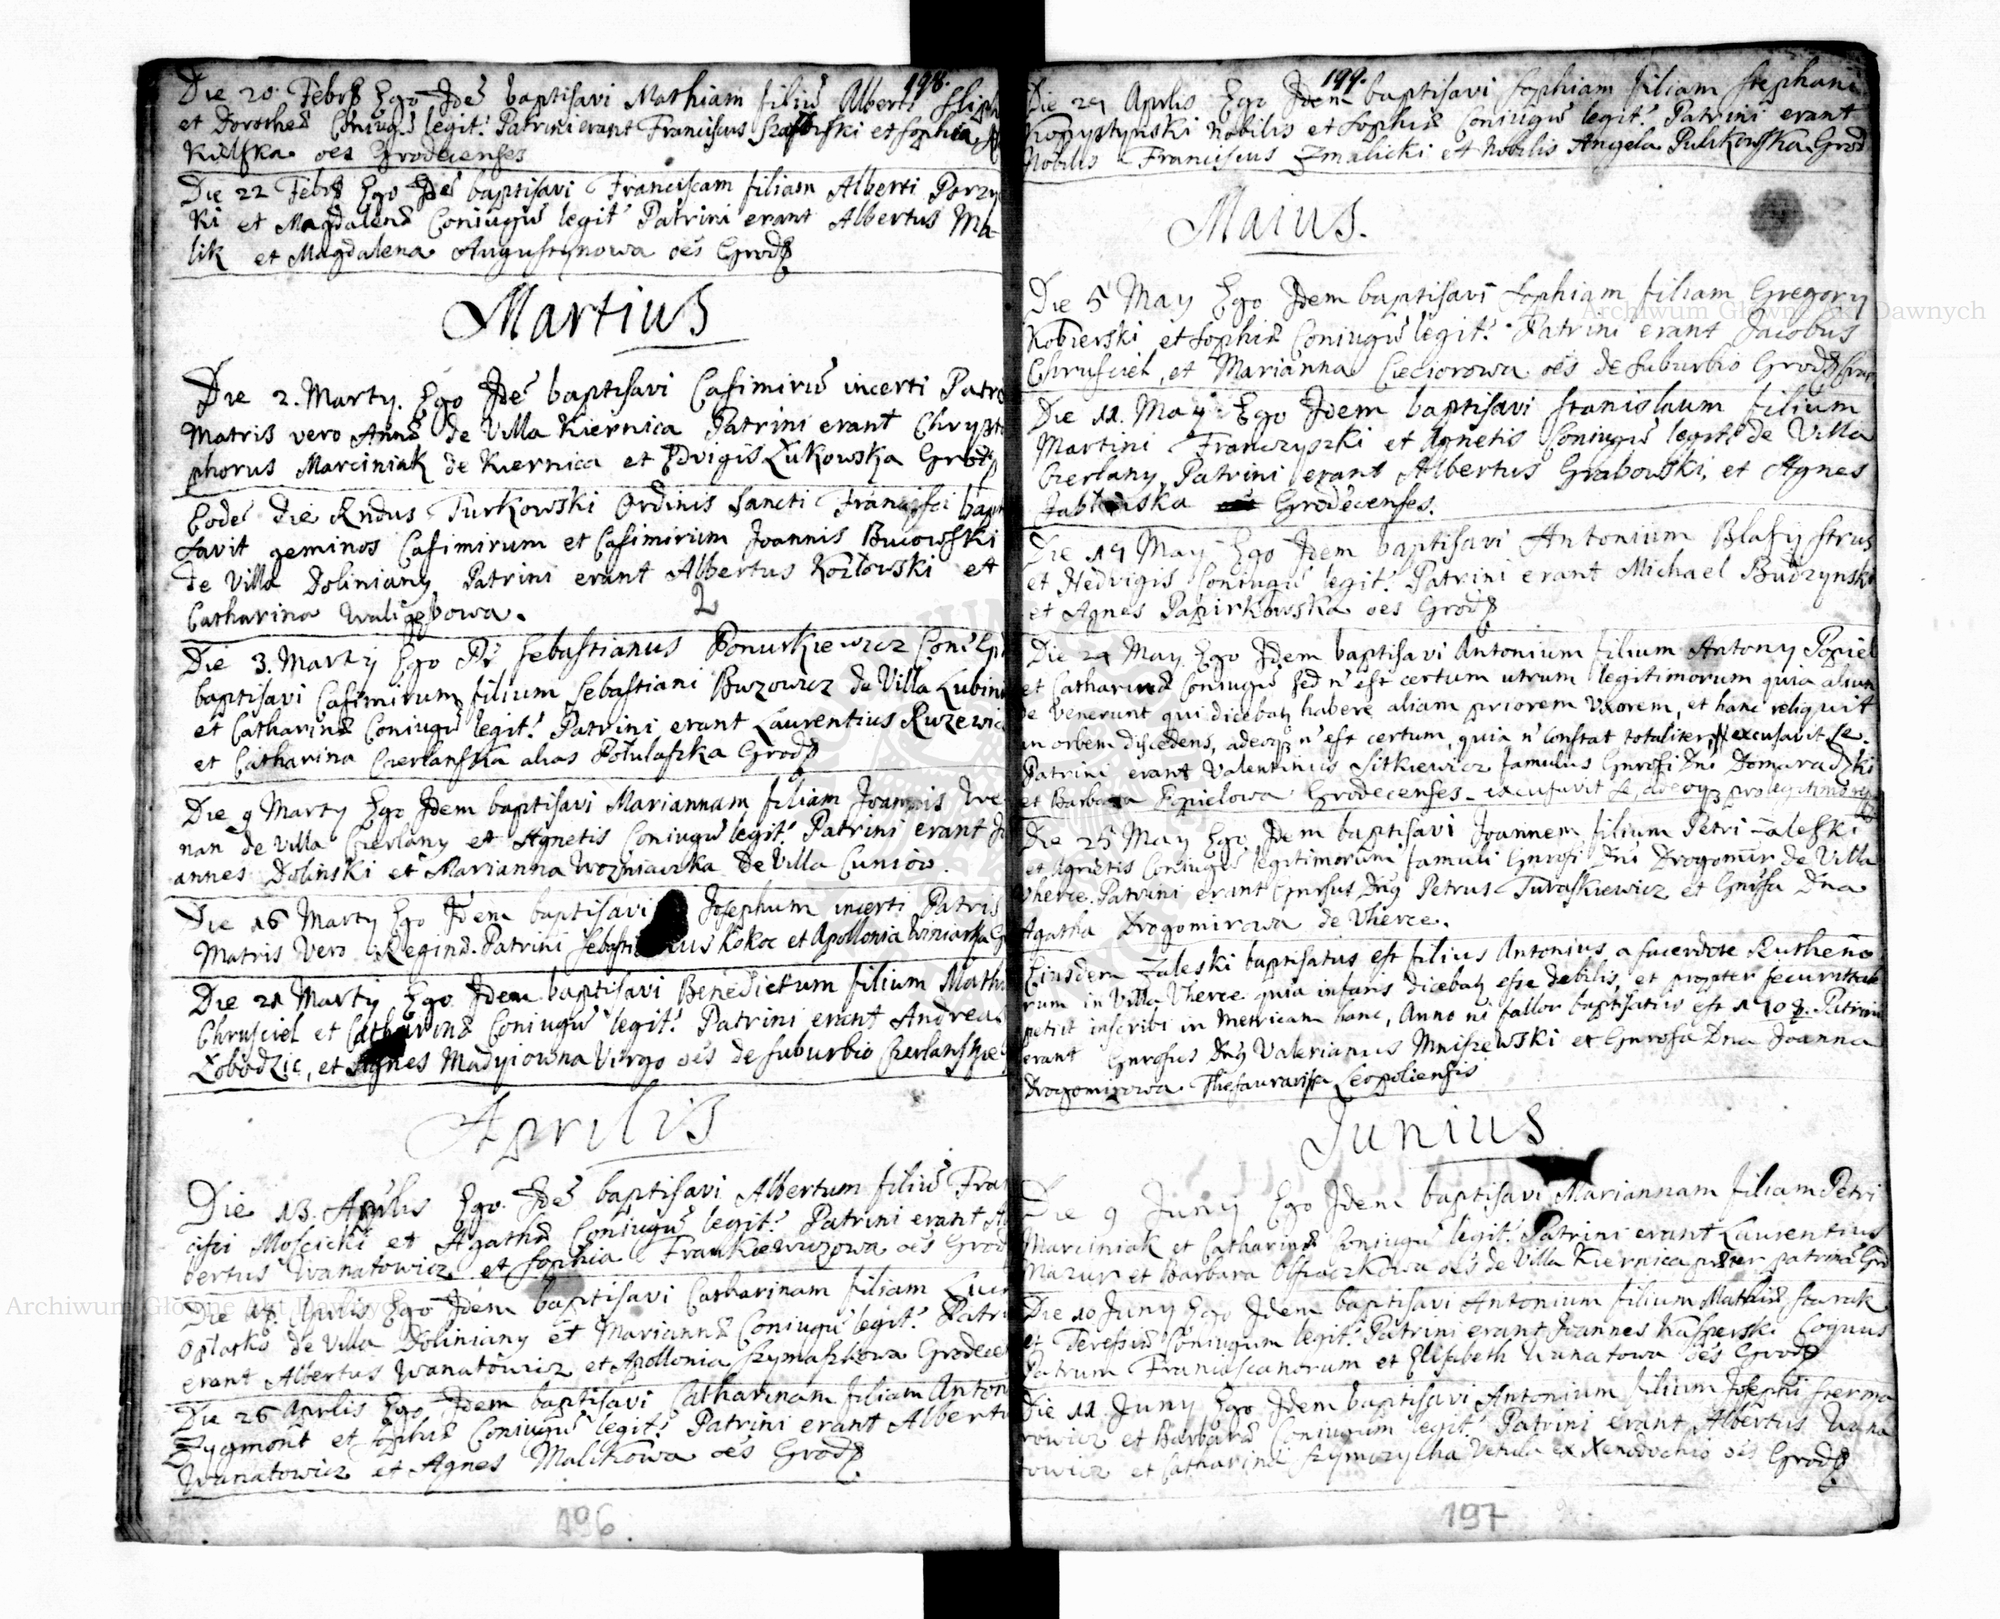 198.
Die 20 Febr Ego Idē baptisavi Mathiam filiū Alberti
et Dorotheæ Coniugū legit: Patrini erant Franciscus et Sophia
Kielska oēs Grodecenses
Die 22 Febr Ego Idē baptisavi Franciscam filiam Alberti
ki et Magdalenæ Coniugū legit: Patrini erant Albertus Ma-
lik et Magdalena Augustynowa oēs Grod
Martius
Die 2. Marty. Ego Idē baptisavi Casimirū incerti Patr
Matris vero Annæ de Villa Kiernica Patrini erant
phorus Marciniak de Kiernica et Edvigis Łukowska Grod
Eodē die Rndus Turkowski Ordinis Sancti Francisci bapt
savit geminos Casimirum et Casimirum Joannis Bucowski
de Villa Doliniany Patrini erant Albertus Kozłowski et
Catharina
2
Die 3. Marty Ego Sebastianus Ponurkiewicz
baptisavi Casimirum filium Sebastiani Buzowicz de Villa Lubin
et Catharinæ Coniugū legit: Patrini erant Laurentius Ruzewic
et Catharina Czerlanska alias Potulaszka Grod
Die 9 Marty Ego Idem baptisavi Mariannam filiam Joannis
nan de Villa Czerlany et Agnetis Coniugū legit: Patrini erant Jo
annes Dolinski et Marianna Wozniaczka de Villa Cuniow.
Die 16 Marty Ego Idem baptisavi Josephum incerti Patris
Matris Vero Reginæ. Patrini Kokoc et Apollonia Winiarka
Die 21 Marty Ego Idem baptisavi Benedictum filium
Chrusciel et Catharinæ Coniugū legit: Patrini erant Andreas
Łobodzic, et Agnes Madyiowna Virgo oēs de suburbio
Aprilis
Die 13. Aprilis Ego Idē baptisavi Albertum filiū Fran
cisci Moscicki et Agathæ Coniugū legit: Patrini erant Al
bertus Wanatowicz et Sophia Frankiewiczowa oēs Grod
Die 18. Aprilis Ego Idem baptisavi Catharinam filiam
de Villa Doliniany et Mariannæ Coniugū legit: Patri
erant Albertus Wanatowicz et Apollonia Szymaszkowa Grodecen
Die 26 Aprlis Ego Idem baptisavi Catharinam filiam Anton
Zygmont et Sophiæ Coniugū legit: Patrini erant Albertu
Wanatowicz et Agnes Malikowa oēs Grod
196
199.
Die 29 Aprlis Ego Idem baptisavi Sophiam filiam Stephani
Kopystynski Nobilis et Sophiæ Coniugū legit: Patrini erant
Nobilis Franciscus Zmalicki et Nobilis Angela Pulikowska Grod
Maius.
Die 5 May Ego Idem baptisavi Sophiam filiam Gregory
Kobierski et Sophiæ Coniugū legit: Patrini erant Jacobus
Chrusciel, et Marianna Cieciorowa oēs de suburbio
Die 11. May Ego Idem baptisavi Stanislaum filium
Martini Franczyszki et Agnetis Coniugū legit: de Villa
Czerlany, Patrini erant Albertus Grabowski, et Agnes
Grodecenses.
Die 19 May Ego Idem baptisavi Antonium Blasij Strus
et Hedvigis Coniugū legit: Patrini erant Michael Budzynski
et Agnes Papirkowska oēs Grod
Die 24 May. Ego Idem baptisavi Antonium filium Antony Popiel
et Catharinæ Coniugū sed n̄ est certum utrum legitimorum quia aliun
de venerunt qui dicebat habere aliam priorem Vxorem, et hanc reliquit
in orbem discedens, adeoq n̄ est certum, quia n̄ constat totaliter, excusavit se.
Patrini erant Valentinus Sitkiewicz famulus Gnrosi Dni Domaradzki
et Barbara Popielowa Grodecenses - excusavit se, adeoq pro legitimo
Die 25 May Ego Idem baptisavi Joannem filium Petri Zaleski
et Agnetis Coniugū legitimorum famuli Gnrosi Dni Drogomir de Villa
Vherce. Patrini erant Gnrosus Dns Petrus Turaszkiewicz et Gnrosa Dna
Agatha Drogomirowa de Vherce.
Eiusdem Zaleski baptisatus est filius Antonius a sacerdote Rutheno
rum in Villa Vherce quia infans dicebat esse debilis, et propter securitate
petiit inscribi in Metricam hanc, Anno ni fallor baptisatus est 1708. Patrini
erant Gnrosus Dns Valerianus Mniszewski et Gnrosa Dna Joanna
Drogomirowa Thesaurarissa Leopoliensis
Junius
Die 9 Juny Ego Idem baptisavi Mariannam filiam Petri
Marciniak et Catharinæ Coniugū legit: Patrini erant Laurentius
Mazur et Barbara oēs de Villa Kiernica
Die 10 Juny Ego Idem baptisavi Antonium filium Mathiæ Starak
et Teressiæ Coniugum legit: Patrini erant Joannes Kasperski Coquus
Patrum Franciscanorum et Elisabeth Wanatowa oēs Grod
Die 11 Juny Ego Idem baptisavi Antonium filium Josephi
rowicz et Barbaræ Coniugum legit: Patrini erant Albertus Wana
towicz et Catharina Szymczycha Vetula ex Xenodochio oēs Grod
197
Archiwum Główne Akt Dawnych
Archiwum Główne Akt Dawnych